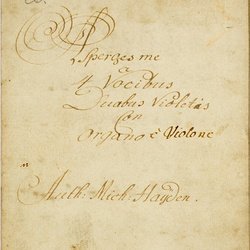 Asperges me
a
4 Vocibus
Duabus Violetis
Con
Organo è Violone
Auth: Mich: Hayden.